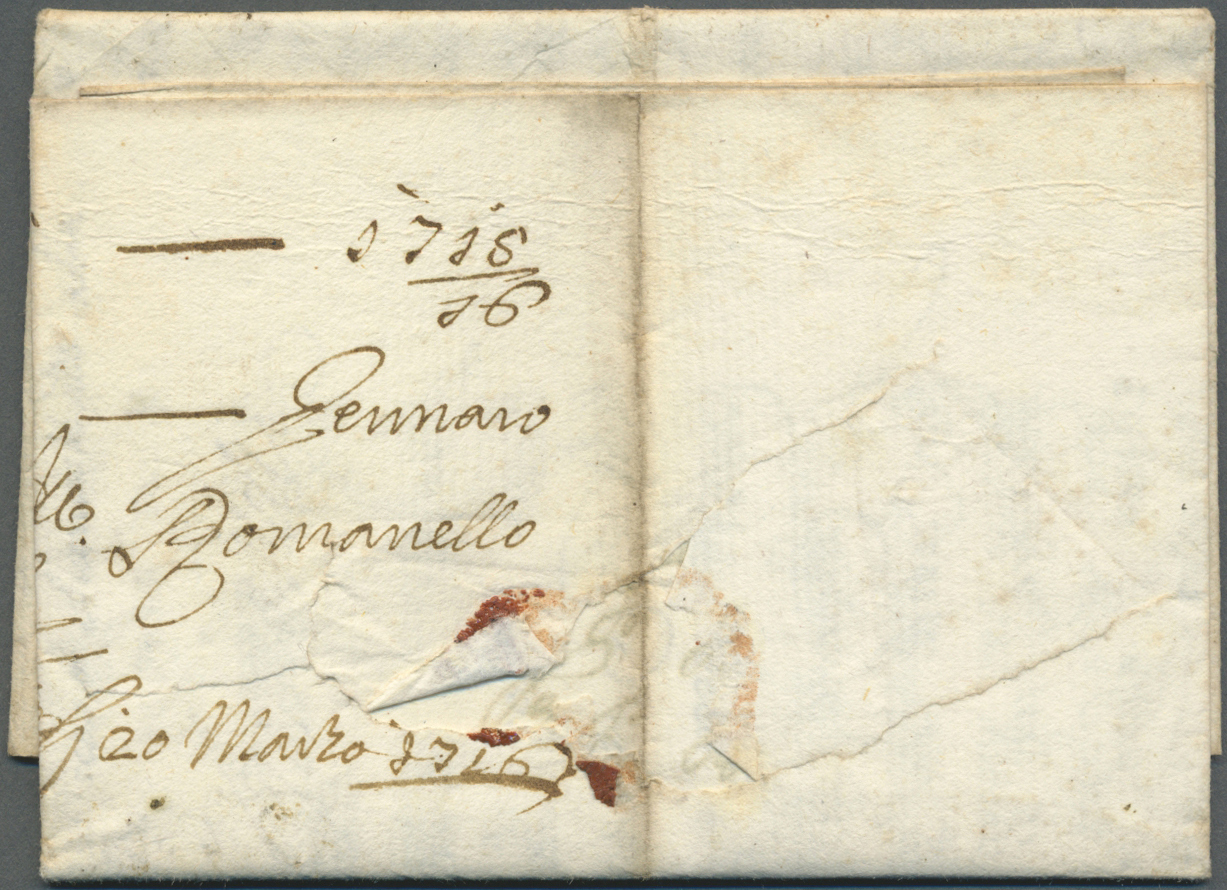 — 1715
16
— Gennaro
Romanello
20 Marzo 1716